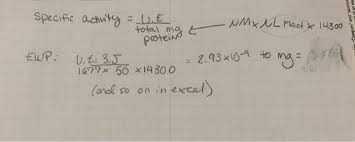 Specific activity = U.E / total mg protein ← NM x NL Fract x 14300
EWP: U.E 3.5 / 1677 x 50 x 14300 = 2.93x10⁻⁹ to mg =
(and so on in excel)